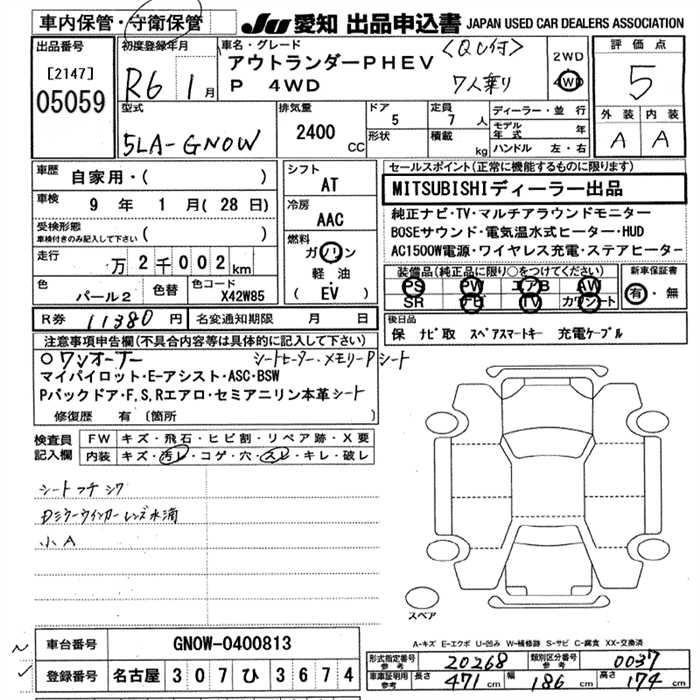 車内保管・守衛保管
JU 愛知 出品申込書 JAPAN USED CAR DEALERS ASSOCIATION
出品番号
[2147]
05059
初度登録年月
R6 1月
車名・グレード
アウトランダーPHEV
P 4WD
7人乗り
2WD
4WD
評価点
5
外装 内装
A A
型式
5LA-GN0W
排気量
2400 CC
ドア
5
形状
定員
7人
積載 kg
ディーラー・並行
モデル年式 年
ハンドル 左・右
車歴
自家用・( )
車検
9年 1月(28日)
受検形態
車検付きのみ記入して下さい ( )
走行
万2千002km
色
パール2
色替
色コード
X42W85
シフト
AT
冷房
AAC
燃料
ガソリン
軽油
(EV)
セールスポイント(正常に機能するものに限ります)
MITSUBISHIディーラー出品
純正ナビ・TV・マルチアラウンドモニター
BOSEサウンド・電気温水式ヒーター・HUD
AC1500W電源・ワイヤレス充電・ステアヒーター
装備品(純正品に限り○をつけてください)
PS PW エアB AW
SR ナビ TV カワシート
新車保証書
有・無
R券 11380円
名変通知期限 月 日
後日品
保 ナビ取 スペアスマートキー 充電ケーブル
注意事項申告欄(不具合内容等は具体的に記入して下さい)
○ワンオーナー シートヒーター・メモリーPシート
マイパイロット・E-アシスト・ASC・BSW
Pバックドア・F,S,Rエアロ・セミアニリン本革シート
修復歴 有 (箇所 )
検査員記入欄
FW キズ・飛石・ヒビ割・リペア跡・X要
内装 キズ・汚レ・コゲ・穴・スレ・キレ・破レ
シートフチシワ
Dミラーウインカーレンズ水滴
小A
スペア
A-キズ E-エクボ U-凹み W-補修跡 S-サビ C-腐食 XX-交換済
車台番号 GN0W-0400813
登録番号 名古屋 307 ひ 3674
形式指定番号 参考 20268
類別区分番号 参考 0037
車庫証明用 参考 長さ 471cm 幅 186cm 高さ 174cm